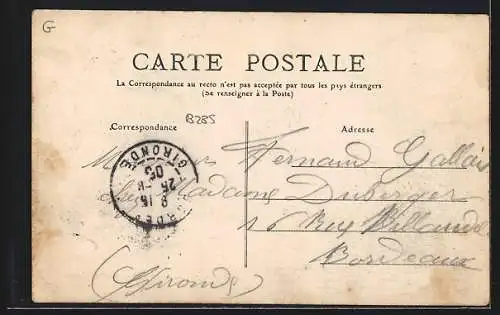 G
CARTE POSTALE
La Correspondance au recto n'est pas acceptée par tous les pays étrangers
(Se renseigner à la Poste)
B285
Correspondance
Adresse
Monsieur Fernand Gallais
chez Madame Duberger
16 Rue
Bordeaux
(Gironde)
GIRONDE